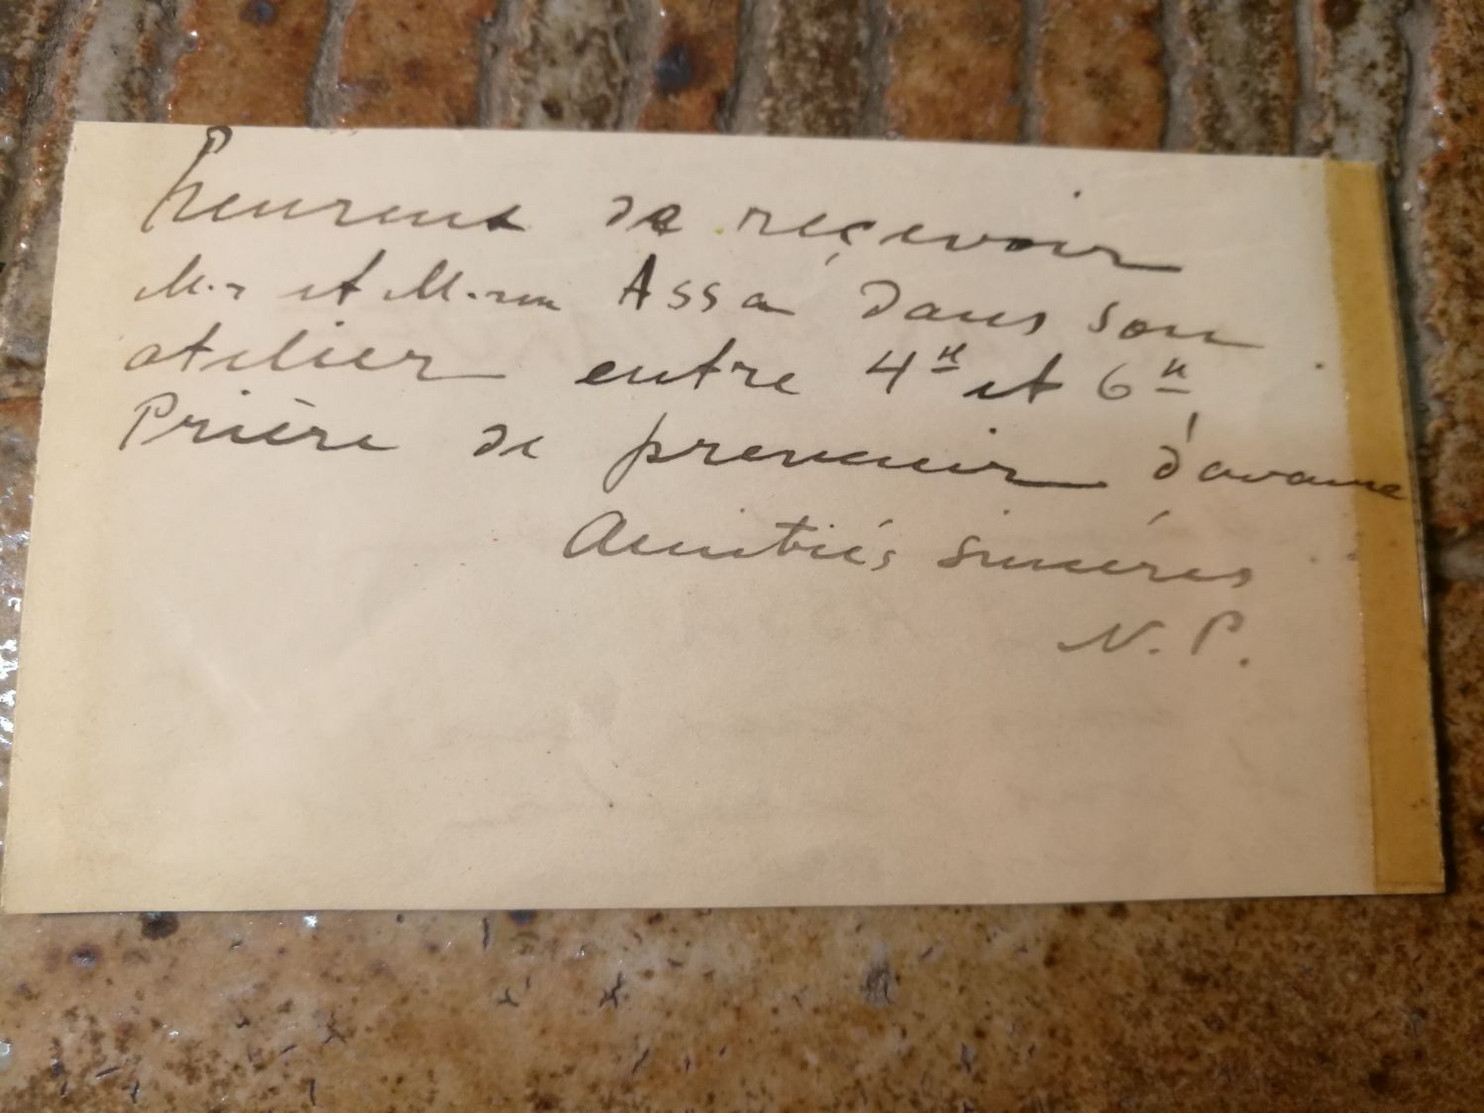 heureux de reçevoir
M.r et M.me Assa dans son
atelier entre 4 h et 6 h
Prière de prevenir d'avance
Amitiés sincéres
N. P.